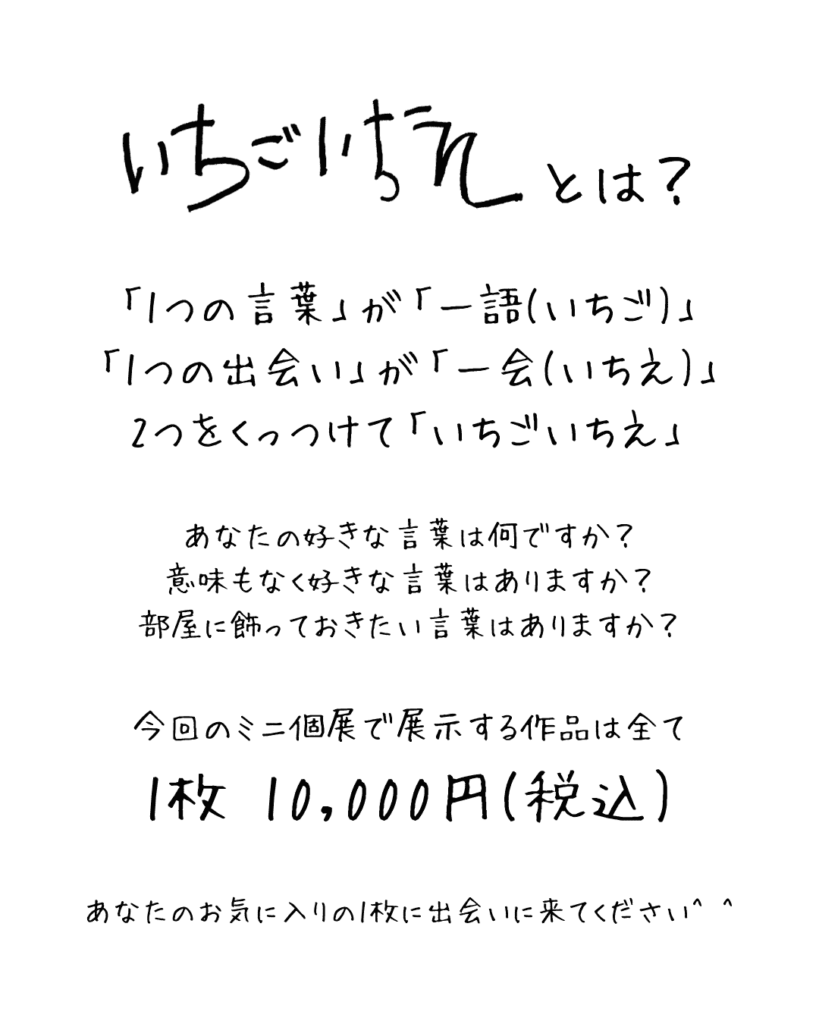 いちごいちえ とは？
「1つの言葉」が「一語(いちご)」
「1つの出会い」が「一会(いちえ)」
2つをくっつけて「いちごいちえ」
あなたの好きな言葉は何ですか？
意味もなく好きな言葉はありますか？
部屋に飾っておきたい言葉はありますか？
今回のミニ個展で展示する作品は全て
1枚 10,000円(税込)
あなたのお気に入りの1枚に出会いに来てください^ ^